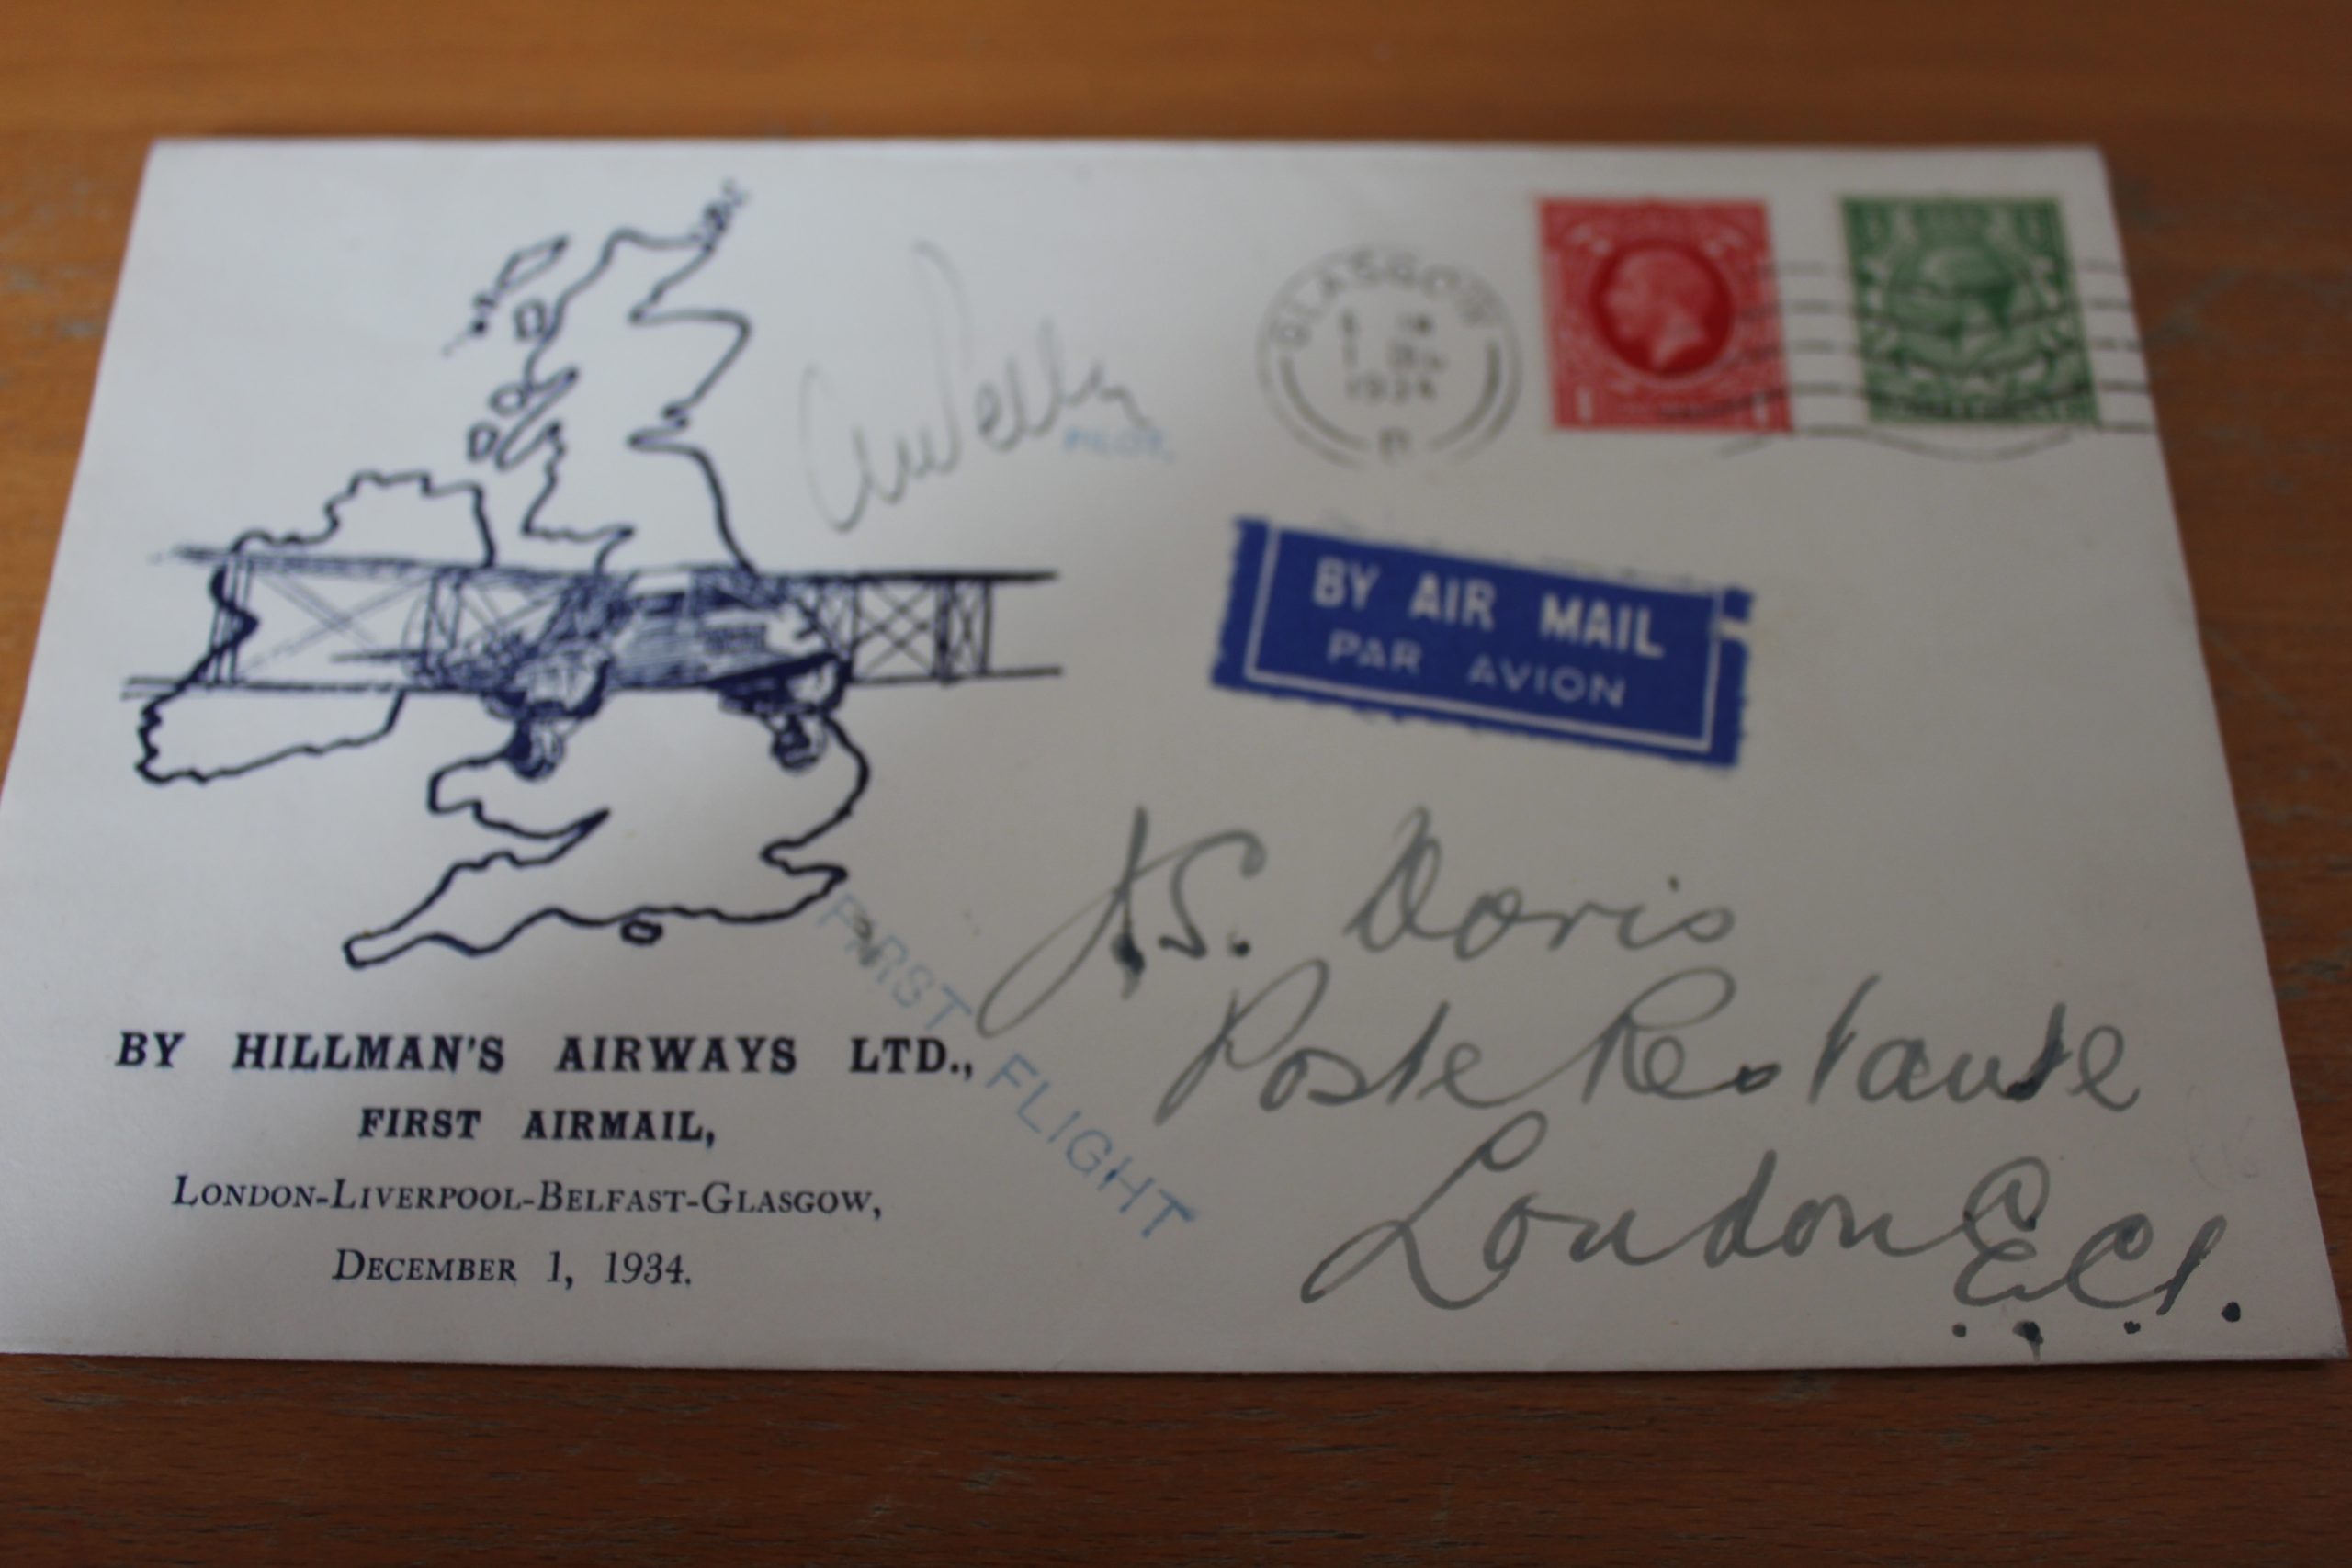 GLASGOW
1 DE
1934
PILOT.
BY AIR MAIL
PAR AVION
J.S. Doris
Poste Restante
London
E.C.1.
FIRST FLIGHT
BY HILLMAN'S AIRWAYS LTD.,
FIRST AIRMAIL,
LONDON-LIVERPOOL-BELFAST-GLASGOW,
DECEMBER 1, 1934.